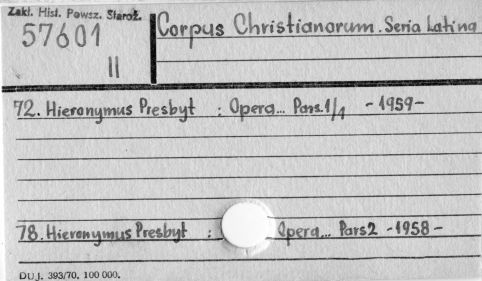 Zakł. Hist. Powsz. Staroż.
57601
II
Corpus Christianorum. Seria Latina
72. Hieronymus Presbyt : Opera... Pars.1/1 - 1959 -
78. Hieronymus Presbyt : Opera... Pars 2 - 1958 -
DUJ. 393/70. 100 000.